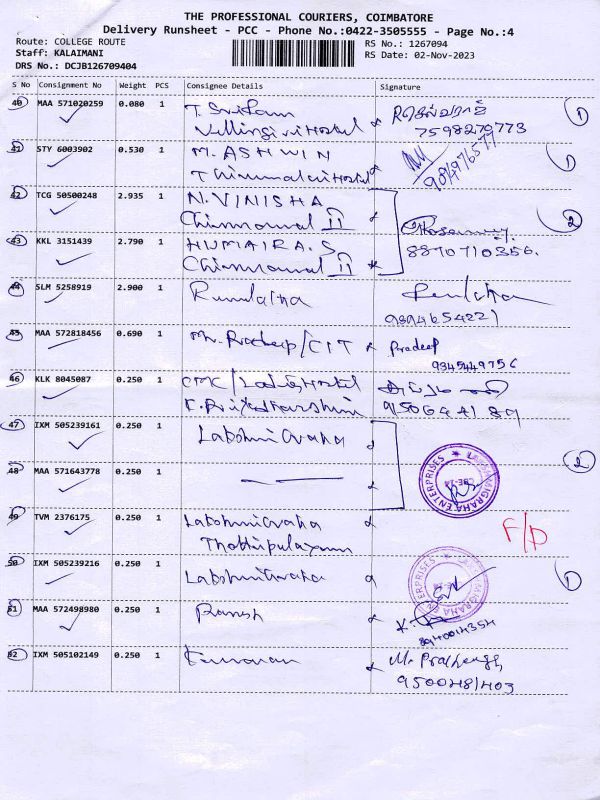 THE PROFESSIONAL COURIERS, COIMBATORE
Delivery Runsheet - PCC - Phone No.:0422-3505555 - Page No.:4
Route: COLLEGE ROUTE
RS No.: 1267094
Staff: KALAIMANI
RS Date: 02-Nov-2023
DRS No.: DCJB126709404
S No Consignment No Weight PCS Consignee Details Signature
40 MAA 571020259 0.080 1
7598270773
41 STY 6003902 0.530 1 M. ASHWIN
42 TCG 50500248 2.935 1 N. VINISHA
Chinnamal II
2
43 KKL 3151439 2.790 1 HUMAIRA. S
Chinnamal II
8870710356.
44 SLM 5258919 2.900 1
9894654221
45 MAA 572818456 0.690 1 Mr. Pradeep / CIT Pradeep
9345449756
46 KLK 8045087 0.250 1 CMC / Ladies Hostel
47 IXM 505239161 0.250 1 Lakshmi Graha
2
48 MAA 571643778 0.250 1
49 TVM 2376175 0.250 1 Lakshmi Graha
F/D
50 IXM 505239216 0.250 1 Lakshmi Graha
1
51 MAA 572498980 0.250 1 Ramesh
52 IXM 505102149 0.250 1 Kumaran
9500481403